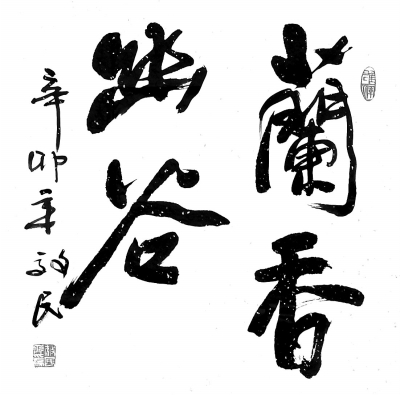 蘭香
幽谷
辛卯年
民